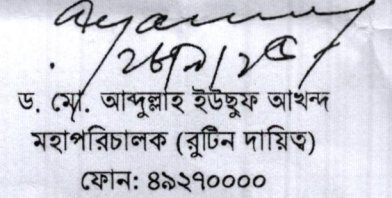 ২৮/৯/২৫
ড. মো. আব্দুল্লাহ ইউছুফ আখন্দ
মহাপরিচালক (রুটিন দায়িত্ব)
ফোন: ৪৯২৭০০০০